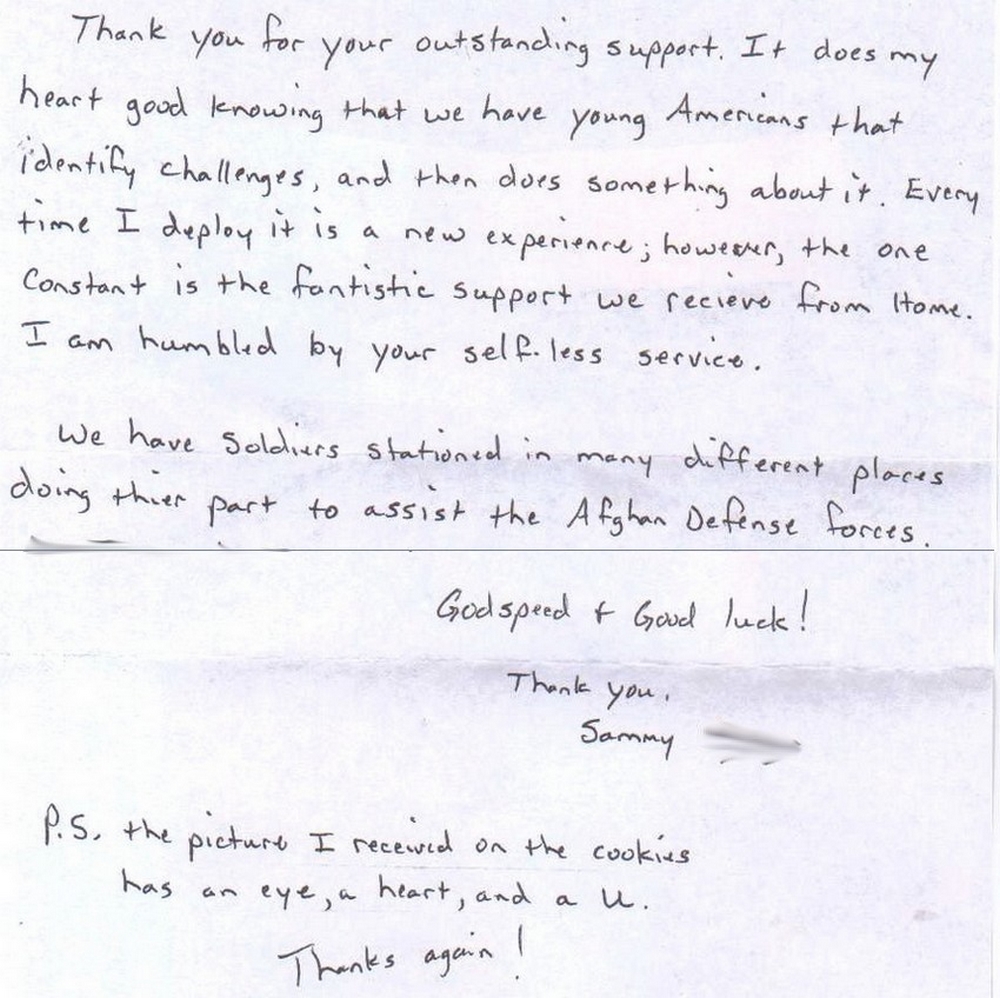 Thank you for your outstanding support. It does my
heart good knowing that we have young Americans that
identify challenges, and then does something about it. Every
time I deploy it is a new experience; however, the one
Constant is the fantistic support we recieve from Home.
I am humbled by your self-less service.
We have Soldiers stationed in many different places
doing thier part to assist the Afghan Defense forces.
Godspeed + Good luck!
Thank you,
Sammy
P.S. the picture I received on the cookies
has an eye, a heart, and a U.
Thanks again!